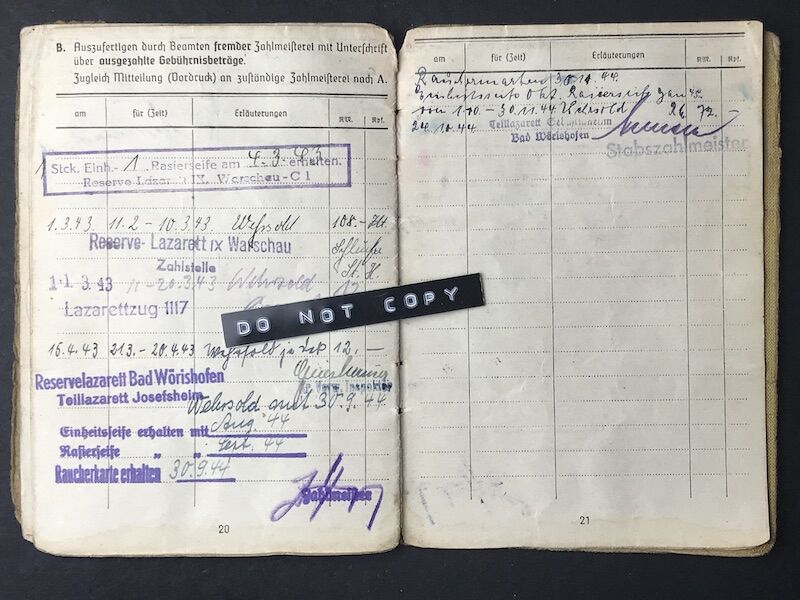 B. Auszufertigen durch Beamten fremder Zahlmeisterei mit Unterschrift
über ausgezahlte Gebührnisbeträge.
Zugleich Mitteilung (Vordruck) an zuständige Zahlmeisterei nach A.
am für (Zeit) Erläuterungen RM. Rpf.
1 Stck. Einh.- 1 Rasierseife am 4.3.43 erhalten.
Reserve-Lazarett IX. Warschau-C1
1.3.43 11.2 - 10.3.43 Wehrsold 108.-
Reserve-Lazarett IX Warschau
Zahlstelle
11.3.43 11-20.3.43 Wehrsold 12
Lazarettzug 1117
DO NOT COPY
15.4.43 21.3.-20.4.43 Wehrsold 12.-
Reservelazarett Bad Wörishofen
Teillazarett Josefsheim
Wehrsold mit 30.9.44
Einheitsseife erhalten mit Aug. 44
Rasierseife " " Sept. 44
Raucherkarte erhalten 30.9.44
Zahlmeister
20
am für (Zeit) Erläuterungen RM. Rpf.
Raucherkarten 30.11.44.
Einheitsseife Okt. Rasierseife
von 1.10.-30.11.44 Wehrsold 72.-
24.10.44 Teillazarett
Bad Wörishofen
Stabszahlmeister
21